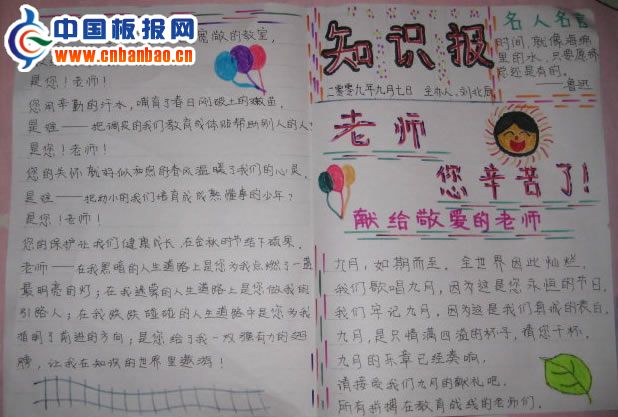 中国板报网
www.cnbanbao.cn
宽敞的教室,
是您!老师!
您用辛勤的汗水,哺育了春日刚破土的嫩苗,
是谁——把调皮的我们教育成体贴帮助别人的人
是您!老师!
您的关怀就好似和煦的春风温暖了我们的心灵。
是谁——把幼小的我们培育成成熟懂事的少年?
是您!老师!
您的保护让我们健康成长,在金秋时节结下硕果。
老师——在我黑暗的人生道路上是您为我点燃了一盏
最明亮的灯;在我迷蒙的人生道路上是您做我的
引路人;在我跌跌碰碰的人生道路中是您为我
指明了前进的方向;是您给了我一双强有力的翅
膀,让我在知识的世界里遨游!
知识报
二零零九年九月七日 主办人:刘北辰
名人名言
时间,就像海绵
里的水,只要愿挤
总还是有的。
——鲁迅
老师
您辛苦了!
献给敬爱的老师
九月,如期而至。全世界因此灿烂。
我们歌唱九月,因为这是您永恒的节日。
我们牢记九月,因为这是我们真诚的表白。
九月,是只情满四溢的杯子,请您干杯。
九月的乐章已经奏响,
请接受我们九月的献礼吧。
所有拼搏在教育战线的老师们。